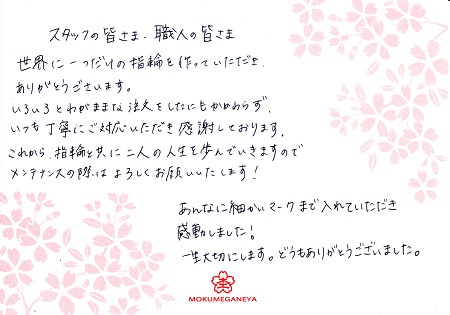 スタッフの皆さま、職人の皆さま
世界に一つだけの指輪を作っていただき、
ありがとうございます。
いろいろとわがままな注文をしたにもかかわらず、
いつも丁寧にご対応いただき感謝しております。
これから、指輪と共に二人の人生を歩んでいきますので
メンテナンスの際はよろしくお願いいたします!
あんなに細かいマークまで入れていただき
感動しました!
一生大切にします。どうもありがとうございました。
MOKUMEGANEYA